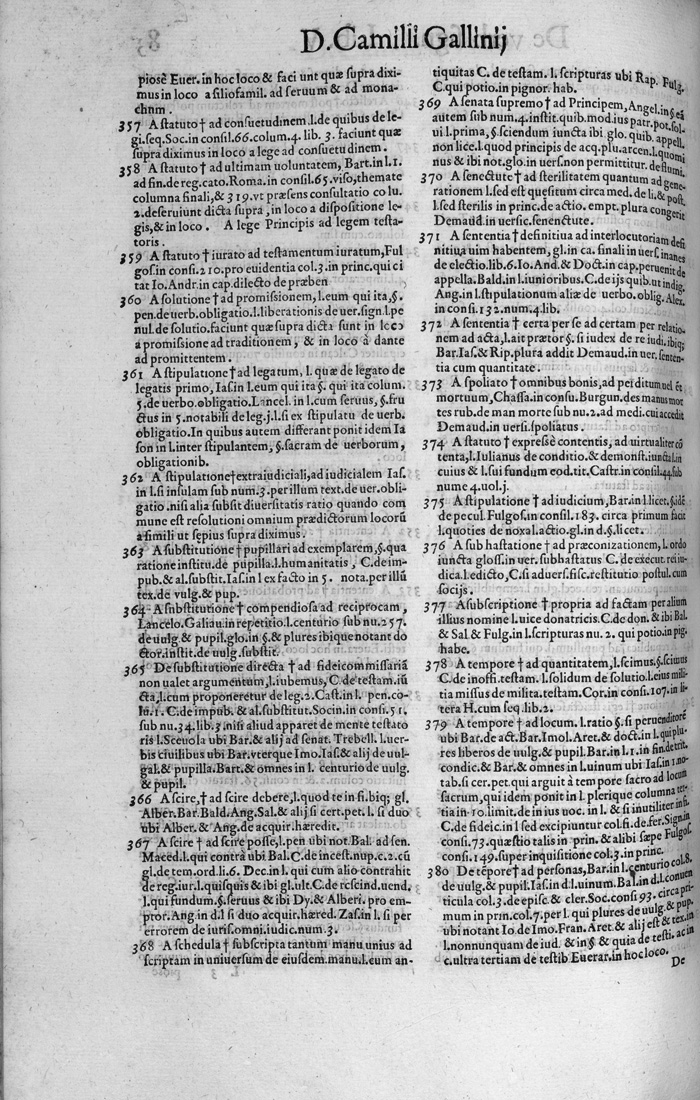 D.Camilli Gallinij
piosè Euer.in hoc loco & faci unt quæ supra dixi-
mus in loco a filiofamil. ad seruum & ad mona-
chnm.
357 A statuto† ad consuetudinem.l.de quibus de le-
gi.seq.Soc.in consil.66.colum.4. lib. 3. faciunt quæ
supra diximus in loco a lege ad consuetudinem.
358 A statuto† ad ultimam uoluntatem, Bart.in l.1.
ad fin.de reg.cato.Roma.in consil.65.viso,themate
columna finali,& 319.vt præsens consultatio colu.
2.deseruiunt dicta supra, in loco a dispositione le-
gis,& in loco. A lege Principis ad legem testa-
toris.
359 A statuto † iurato ad testamentum iuratum,Ful
gos.in consi.210.pro euidentia col.3.in princ.qui ci
tat Io.Andr.in cap.dilecto de præben
360 A solutione† ad promissionem, l.eum qui ita,§.
pen.de uerb.obligatio.l.liberationis de uer.sign.l.pe
nul.de solutio.faciunt quæ supra dicta sunt in loco
a promissione ad traditionem, & in loco à dante
ad promittentem.
361 A stipulatione†ad legatum, l. quæ de legato de
legatis primo, Ias.in l.eum qui ita §. qui ita colum.
5.de uerbo.obligatio.Lancel.in l.cum seruus, §.fru
ctus in 5.notabili de leg.j.l.si ex stipulatu de uerb.
obligatio.In quibus autem differant ponit idem Ia
son in l.inter stipulantem, §.sacram de uerborum,
obligationib.
362 A stipulatione†extraiudiciali,ad iudicialem Ias.
in l.si insulam sub num.3.per illum text.de uer.obli-
gatio.nisi alia subsit diuersitatis ratio quando com
mune est resolutioni omnium prædictorum locorū
a simili ut sępius supra diximus.
363 A substitutione† pupillari ad exemplarem,§.qua
ratione institu.de pupilla.l.humanitatis, C.de im-
pub.& al.substit.Ias.in l ex facto in 5. nota.per illū
tex.de vulg.& pup.
364 A substitutione† compendiosa ad reciprocam,
Lancelo.Galiau.in repetitio.l.centurio sub nu.257.
de uulg.& pupil.glo.in §.& plures ibique notant do
ctor.instit.de uulg.substit.
365 De substitutione directa † ad fideicommissariā
non ualet argumentum,l.iubemus, C.de testam.iū
cta,l.cum proponeretur de leg.2.Cast.in l. pen.co-
lu.1.C.de impub.& al.substitut.Socin.in consi.51.
sub nu.34.lib.3.nisi aliud apparet de mente testato
ris l.Sceuola ubi Bar.& alij ad senat. Trebell. l.uer-
bis ciuilibus ubi Bar.vterque Imo.Ias.& alij de uul-
gal.& pupilla.Bart.& omnes in l. centurio de uulg.
& pupil.
366 A scire,† ad scire debere,l.quod te in fi.biq; gl.
Alber.Bar.Bald.Ang.Sal.& alij si cert.pet. l. si duo
ubi Alber. & Ang.de acquir.hæredit.
367 A scire † ad scire posse,l.pen ubi not.Bal. ad sen.
Maced.l.qui contrà ubi Bal.C.de incest.nup.c.2.cū
gl.de tem.ord li.6. Dec.in l. qui cum alio contrahit
de reg.iur.l.quisquis & ibi gl.ult.C.de rescind.uend,
l.qui fundum.§.seruus & ibi Dy.& Alberi. pro em-
ptor.Ang in d.l si duo acquir.hæred. Zas.in l. si per
errorem de iuris.omni.iudic.num.3.
368 A schedula† subscripta tantum manu unius ad
scriptam in uniuersum de eiusdem.manu.l.eum an-
tiquitas C. de testam. l. scripturas ubi Rap. Fulg.
C.qui potio.in pignor. hab.
369 A senata supremo† ad Principem, Angel.in §.eā
autem sub num.4.instit.quib.mod.ius patr.pot.sol.
ui l.prima,§.sciendum iuncta ibi glo. quib. appell.
non lice.l.quod principis de acq.plu.arcen.l.quomi
nus & ibi not.glo.in uers.non permittitur.de flumi.
370 A senectute† ad sterilitatem quantum ad gene-
rationem l.sed est quesitum circa med.de li.& post.
l.sed sterilis in princ.de actio. empt. plura congerit
Demaud.in uersic.senenctute.
371 A sententia† definitiua ad interlocutoriam defi
nitiua uim habentem, gl.in ca. finali in uers. inanes
de electio.lib.6.Io.And.& Doct.in cap.peruenit de
appella.Bald.in l.iunioribus.C.de ijs quib.ut indig.
Ang.in l.stipulationum aliæ de uerbo.oblig.Alex.
in consi.132.num.4.lib.
372 A sententia† certa per se ad certam per relatio.
nem ad acta,l.ait prætor §. si iudex de re iudi.ibiq;
Bar.Ias.& Rip.plura addit Demaud.in uer.senten-
tia cum quantitate.
373 A spoliato† omnibus bonis,ad perditum uel
mortuum, Chassa.in consu. Burgun.des manus mor
tes rub.de man morte sub nu.2.ad medi.cui accedit
Demaud.in uersi.spoliatus.
374 A statuto † expressè contentis, ad uirtualiter cō
tenta,l.Iulianus de conditio.& demonst.iuncta l.in
cuius & l.sui fundum eod.tit.Castr.in consil.44.sub
nume 4.uol.j.
375 A stipulatione † ad iudicium, Bar.in l.licet.§.idē
de pecul.Fulgos.in consil. 183. circa primum facit
l.quoties de noxal.actio.gl.in d.§.licet.
376 A sub hastatione † ad præconizationem, l. ordo
iuncta gloss.in uer.subhastatus C.de execut.rei iu-
dica.l.edicto,C.si aduers.fisc.restitutio postul.cum
socijs.
377 A subscriptione † propria ad factam per alium
illius nomine l.uice donatricis.C.de don. & ibi Bal.
& Sal.& Fulg.in l.scripturas nu. 2. qui potio.in pig.
habe.
378 A tempore † ad quantitatem, l.scimus.§.scimus
C.de inoffi.testam. l. solidum de solutio.l.eius mili-
tia missus de milita.testam.Cor.in consi.107.in li-
tera H.cum seq.lib.2.
379 A tempore † ad locum. l. ratio §. si peruenditorē
ubi Bar.de act.Bar.Imol.Aret.& doct.in l.qui plu-
res liberos de uulg.& pupil.Bar.in l.1.in fin.de trit.
condic.& Bar.& omnes in l.uinum ubi Ias.in 1.no-
tab.si cer.pet.qui arguit à tempore sacro ad locum
sacrum,qui idem ponit in l. plerique columna ter-
tia in 10.limit.de in ius uoc. in l. & si inutiliter insti.
C.de fideic.in l sed excipiuntur col.fi.de fer.Sign.in
consi.73.quæstio talis in prin.& alibi sæpe Fulgos.
consi.149.super inquisitione col.3.in princ.
380 De tēpore† ad personas, Bar.in l.centurio col.8.
de uulg.& pupil.Ias.in d.l.uinum.Bal.in d.l.conuen
ticula col.3.de episc.& cler.Soc.consi 93. circa pri-
mum in prin.col.7.per l. qui plures de uulg.& pup.
ubi notant Io.de Imo.Fran.Aret.& alij est & tex.in
l.nonnunquam de iud. & in § & quia de testi. ac in
c.ultra tertiam de testib Euerar.in hoc loco.
De